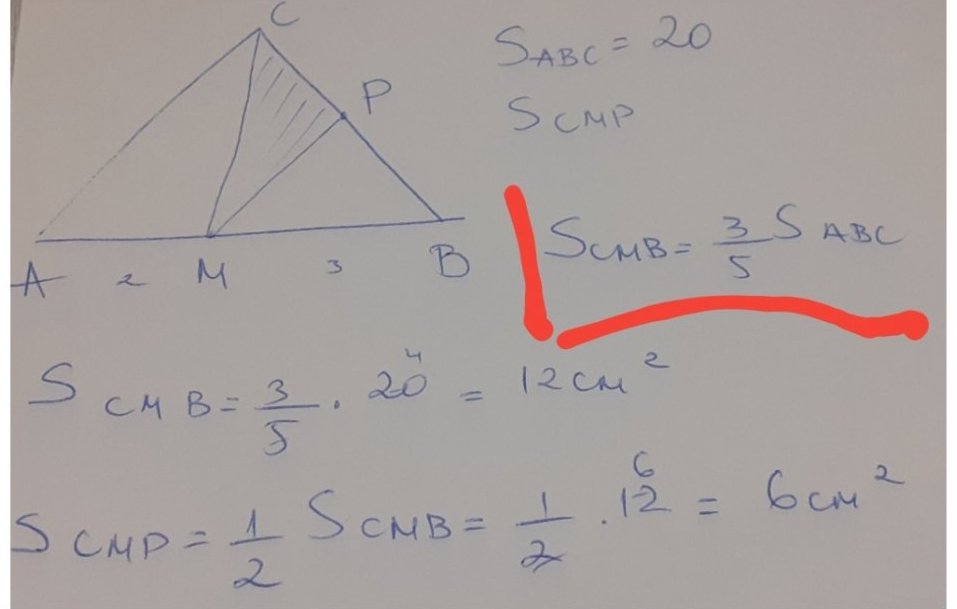 C
P
A 2 M 3 B
S ABC = 20
S CMP
S CMB = 3/5 S ABC
S CMB = 3/5 · 20 4 = 12 см²
S CMP = 1/2 S CMB = 1/2 · 12 6 = 6 см²